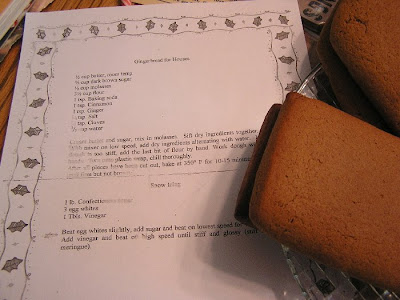 Gingerbread for Houses
cup butter, room temp
cup dark brown sugar
cup molasses
flour
1 tsp. Baking soda
1 tsp. Cinnamon
1 tsp. Ginger
tsp. Salt
tsp. Cloves
cup water
butter and sugar, mix in molasses. Sift dry ingredients together
on low speed, add dry ingredients alternating with water.
is too stiff, add the last bit of flour by hand. Work dough
plastic wrap, chill thoroughly.
After all pieces have been cut out, bake at 350° F for 10-15 minutes
but not
Snow Icing
1 lb. Confectioners
3 egg whites
1 Tbls. Vinegar
Beat egg whites slightly, add sugar and beat on lowest speed for
Add vinegar and beat on high speed until stiff and glossy
meringue)